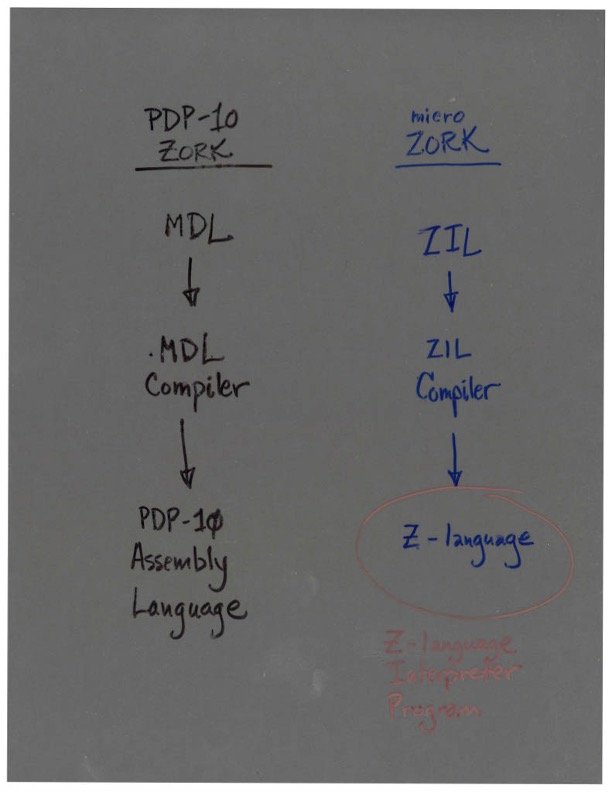 PDP-10
ZORK
MDL
.MDL
Compiler
PDP-10
Assembly
Language
micro
ZORK
ZIL
ZIL
Compiler
Z-language
Z-language
Interpreter
Program